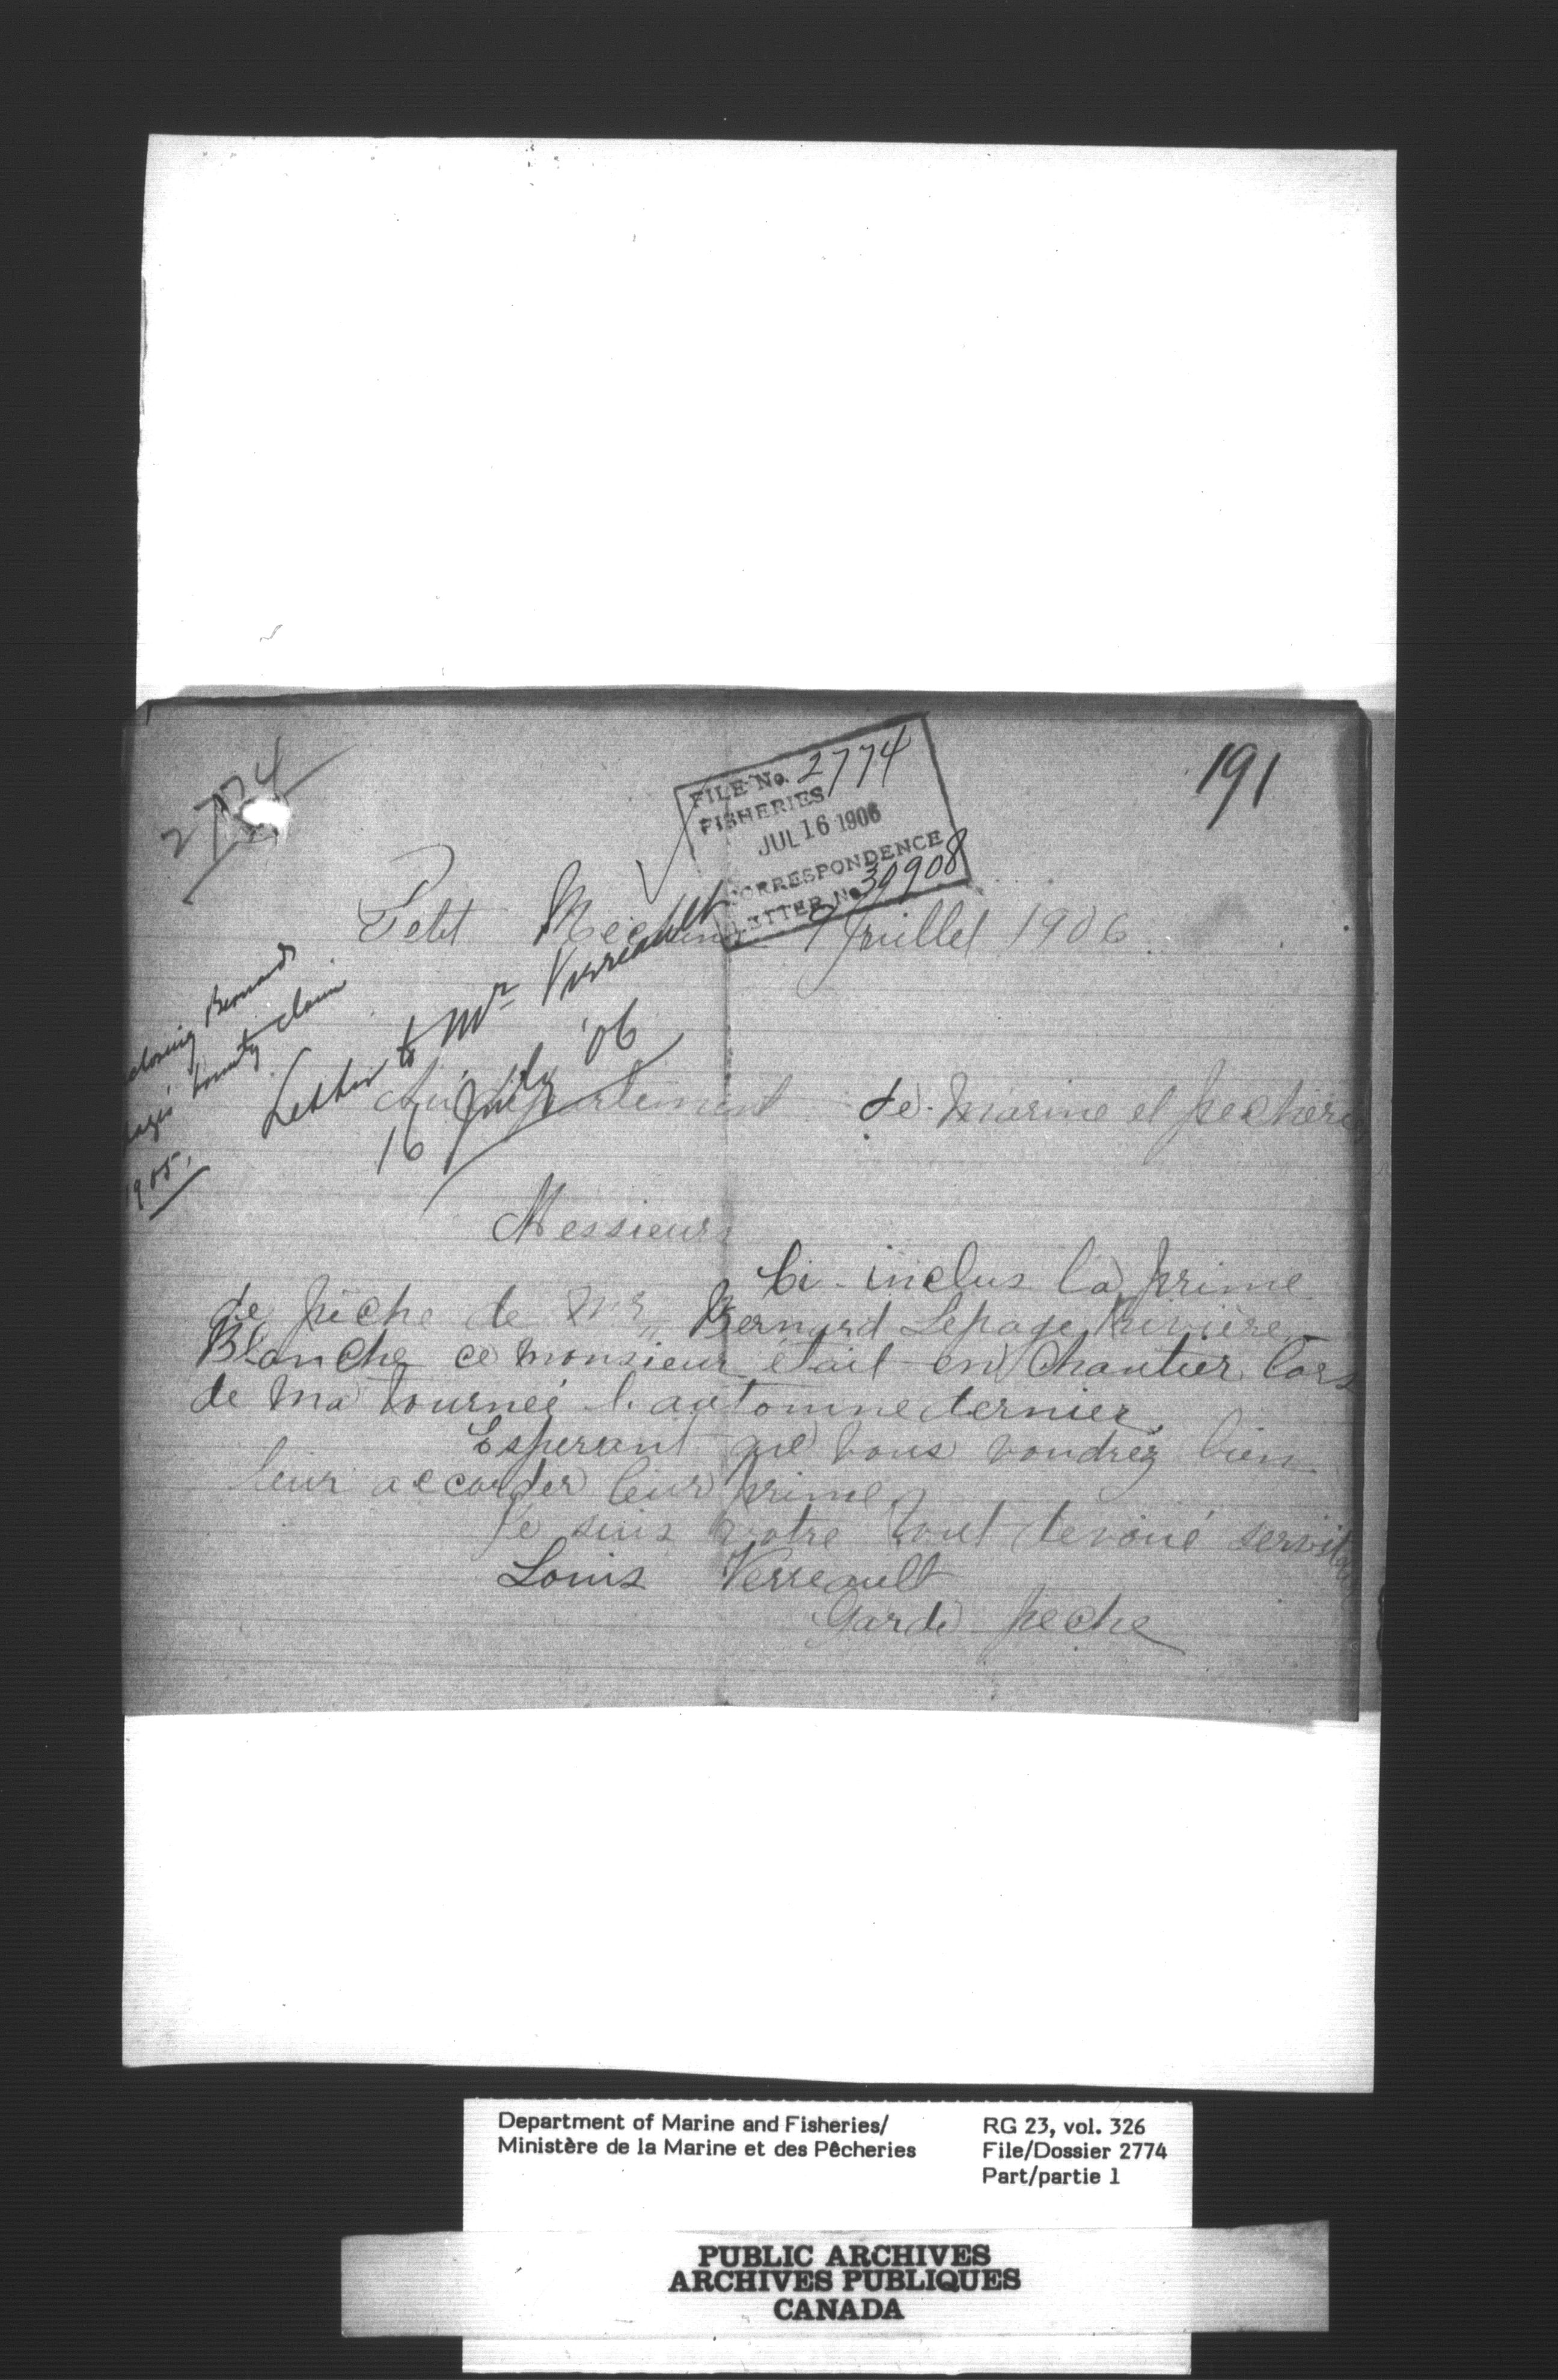 2774
191
FILE No. 2774
FISHERIES
JUL 16 1906
CORRESPONDENCE
LETTER No. 39908
Petit Mechins 9 Juillet 1906
closing Bernard
bounty claim
1905.
Letter to Mr Verreault
16 July '06
Au département de marine et pecheries
Messieurs
Ci-inclus la prime
de pêche de Mr Bernard Lepage Rivière
Blanche ce monsieur était en Chantier lors
de ma tourneé l'automne dernier.
Esperant que vous voudrez bien
leur accorder leur prime.
Je suis votre tout devoué serviteur
Louis Verreault
Garde peche
Department of Marine and Fisheries/
Ministère de la Marine et des Pêcheries
RG 23, vol. 326
File/Dossier 2774
Part/partie 1
PUBLIC ARCHIVES
ARCHIVES PUBLIQUES
CANADA